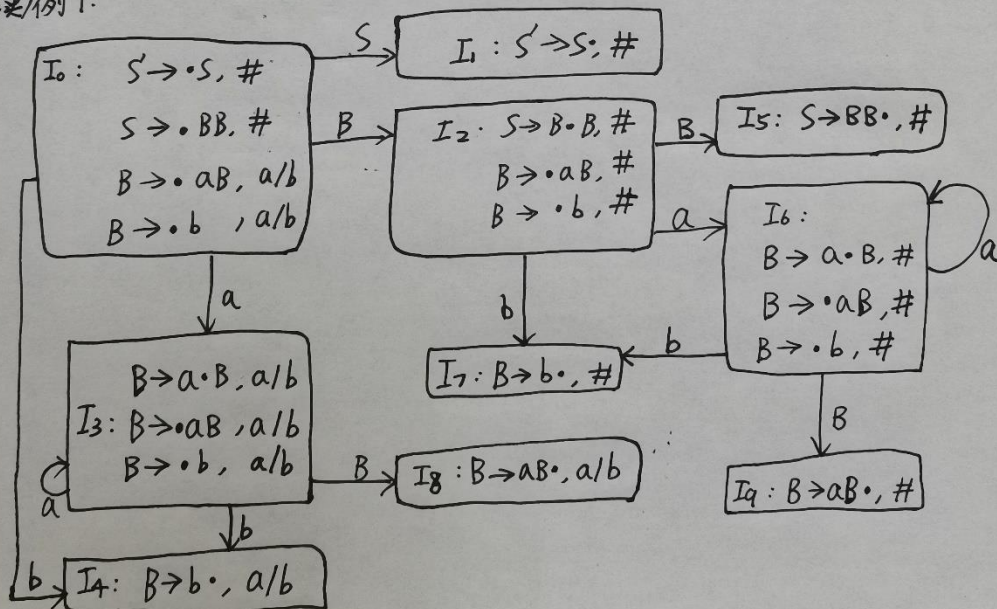 例1.
I₀: S'→·S, #
S→·BB, #
B→·aB, a/b
B→·b , a/b
S
I₁: S'→S·, #
B
I₂: S→B·B, #
B→·aB, #
B→·b, #
B
I5: S→BB·, #
a
I6:
B→a·B, #
B→·aB, #
B→·b, #
a
a
b
b
I7: B→b·, #
B
B→a·B, a/b
I3: B→·aB, a/b
B→·b, a/b
a
B
I8: B→aB·, a/b
I9: B→aB·, #
b
b
I4: B→b·, a/b